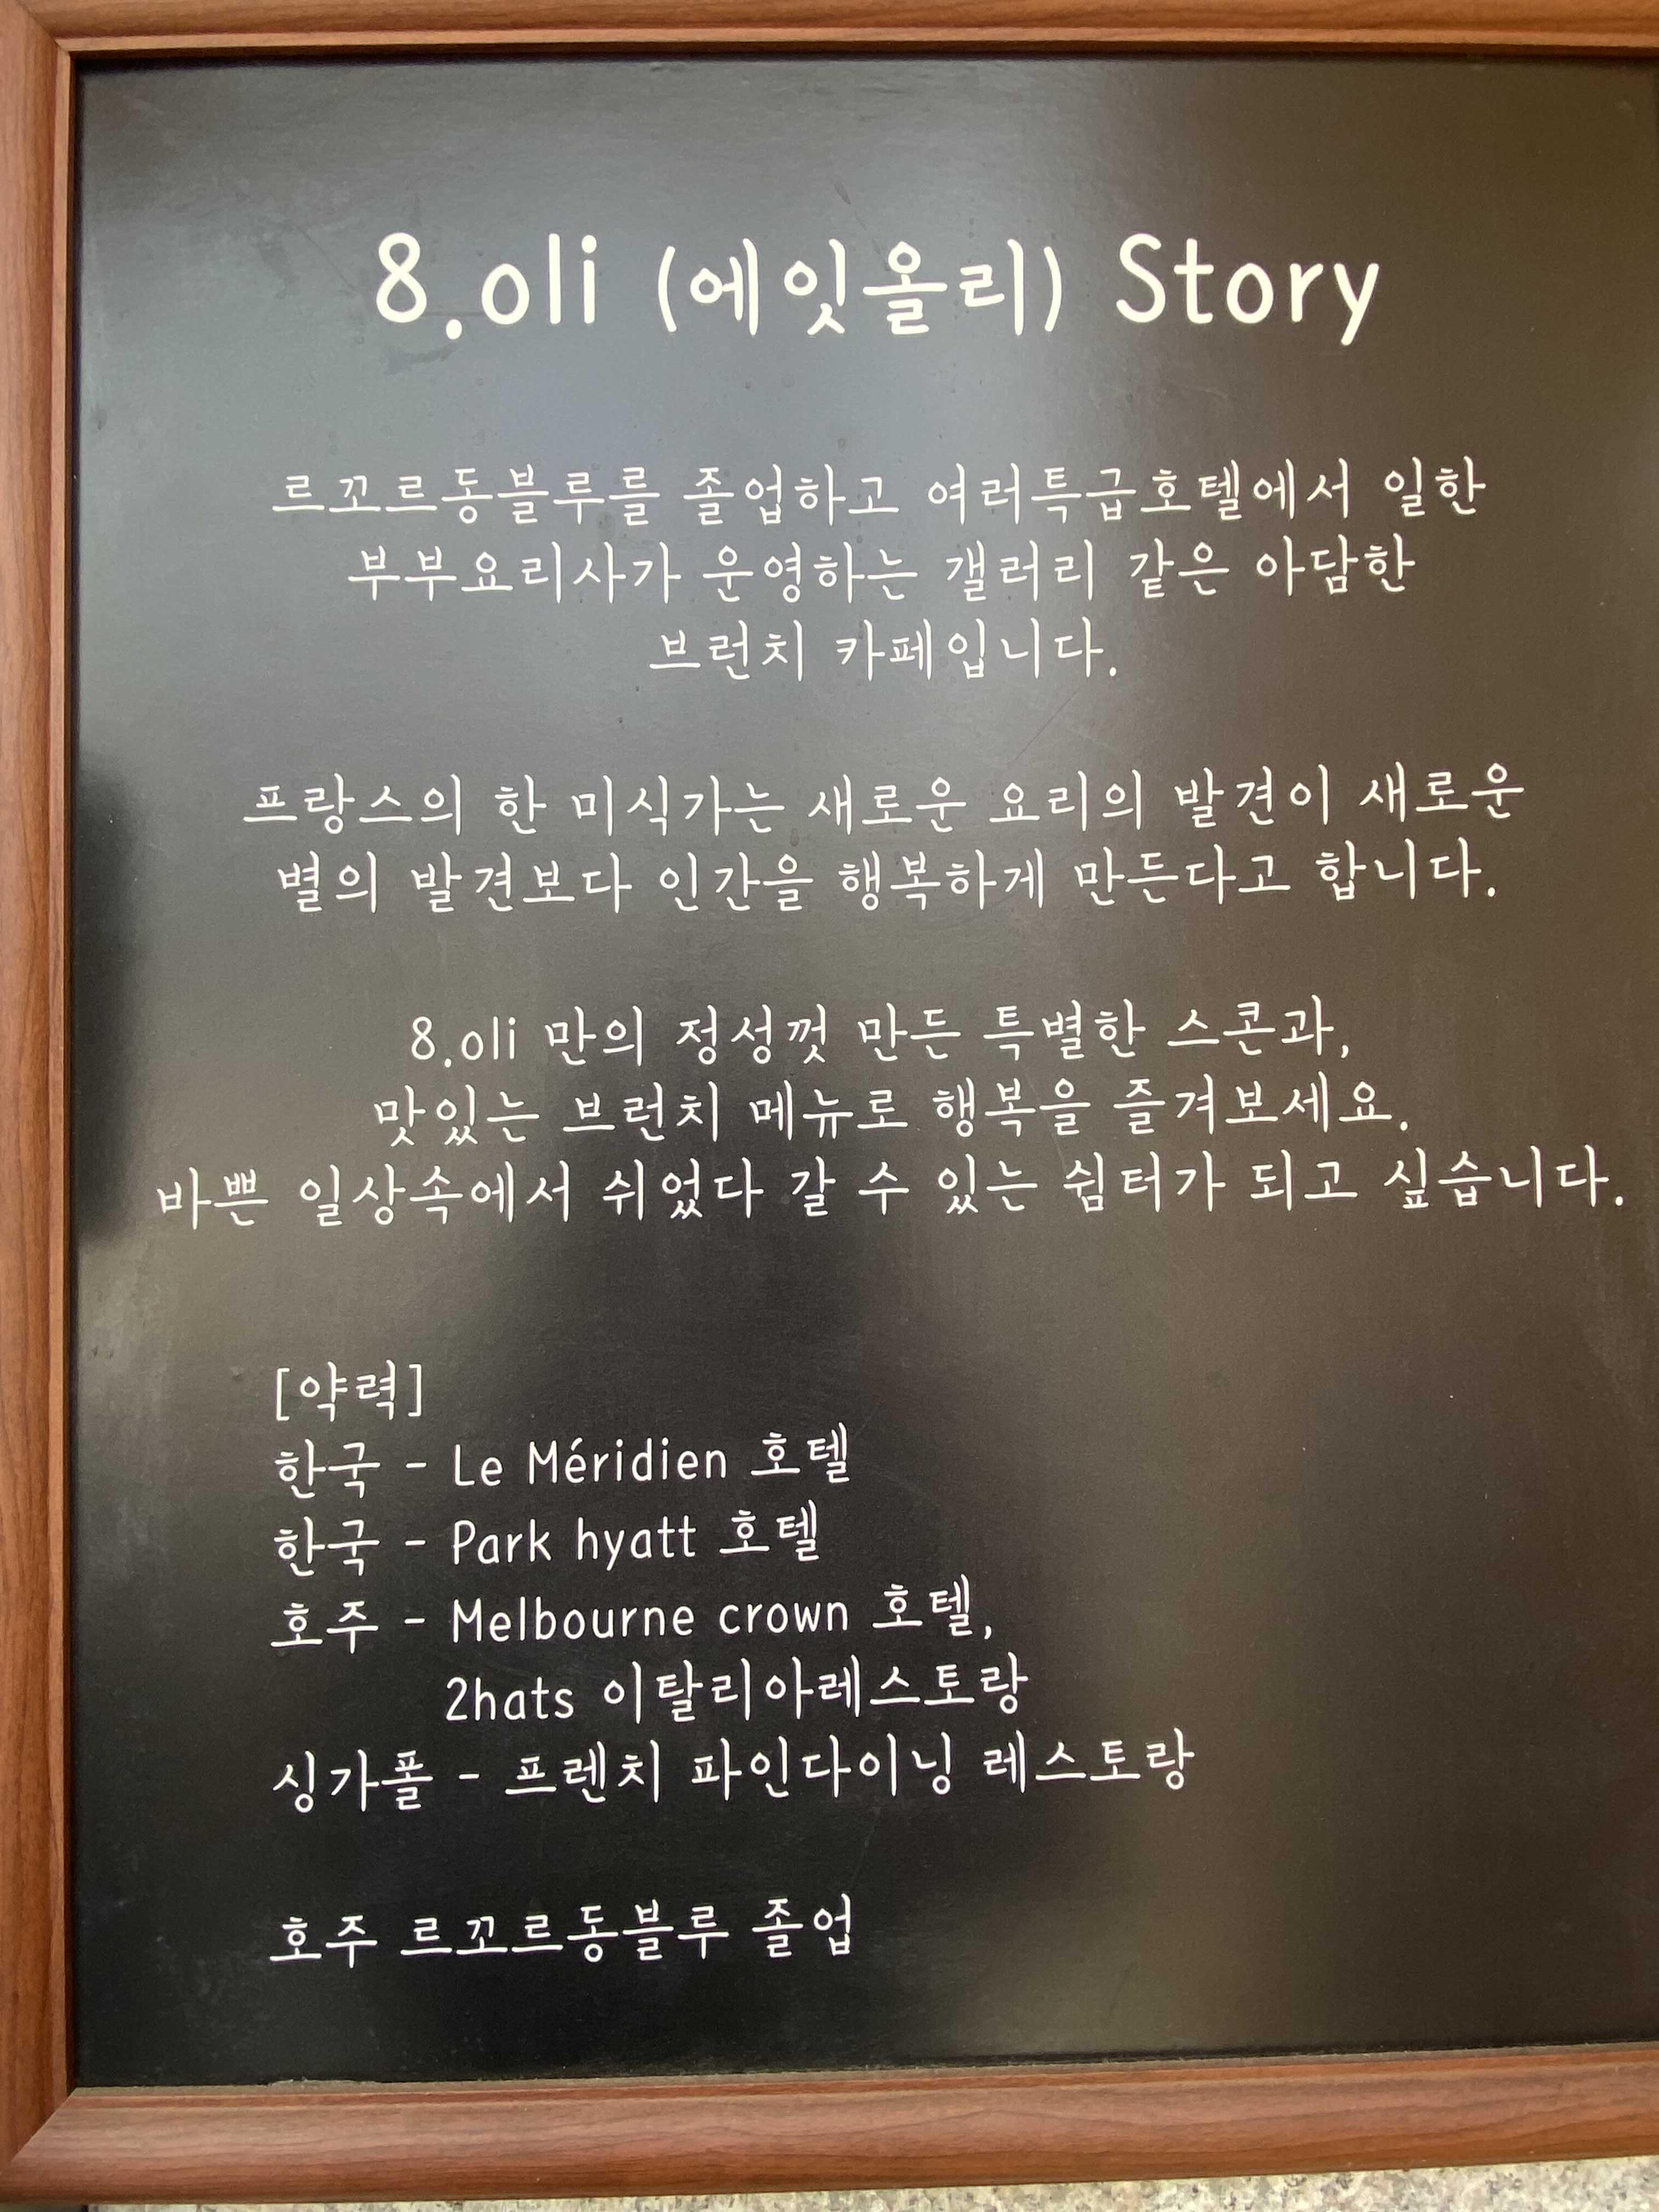 8.oli (에잇올리) Story
르꼬르동블루를 졸업하고 여러특급호텔에서 일한
부부요리사가 운영하는 갤러리 같은 아담한
브런치 카페입니다.
프랑스의 한 미식가는 새로운 요리의 발견이 새로운
별의 발견보다 인간을 행복하게 만든다고 합니다.
8.oli 만의 정성껏 만든 특별한 스콘과,
맛있는 브런치 메뉴로 행복을 즐겨보세요.
바쁜 일상속에서 쉬었다 갈 수 있는 쉼터가 되고 싶습니다.
[약력]
한국 - Le Méridien 호텔
한국 - Park hyatt 호텔
호주 - Melbourne crown 호텔,
2hats 이탈리아레스토랑
싱가폴 - 프렌치 파인다이닝 레스토랑
호주 르꼬르동블루 졸업